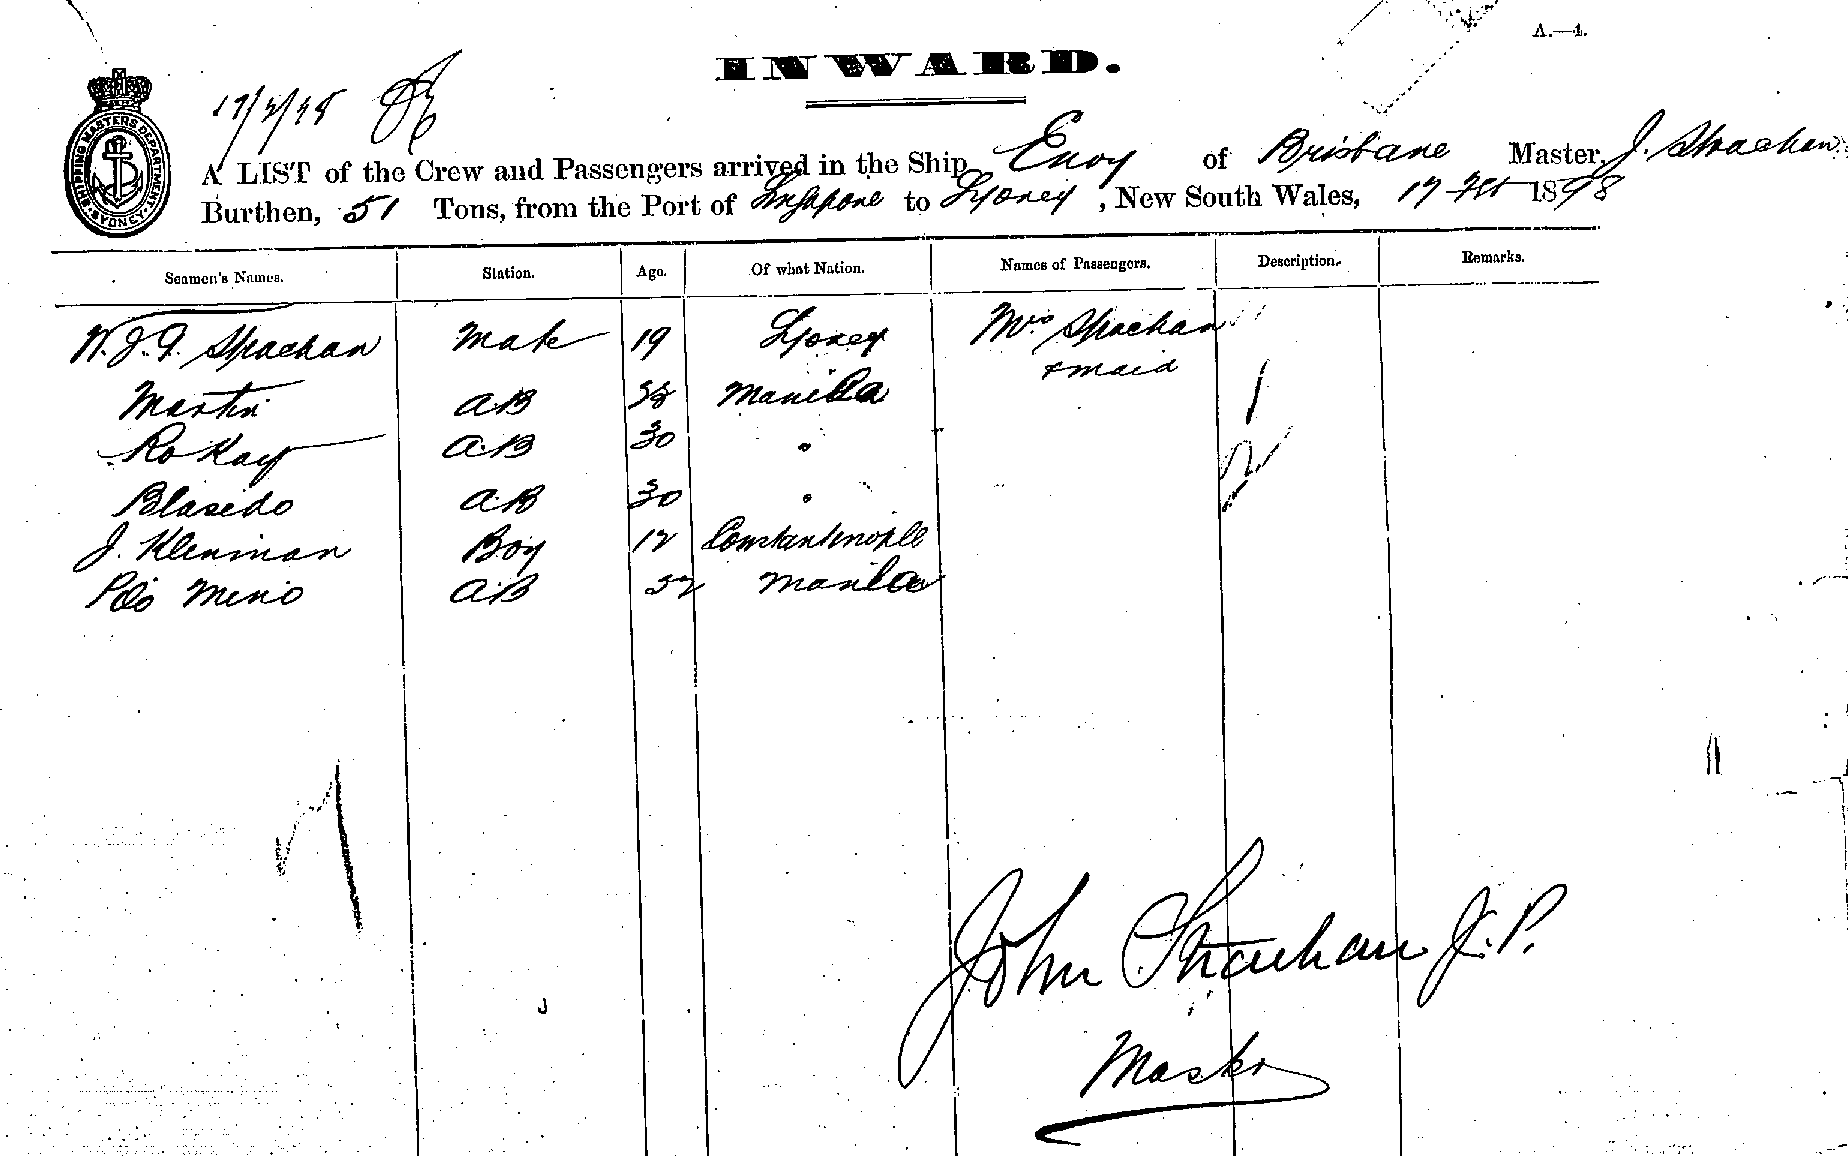 A.—4.
INWARD.
17/2/98
SHIPPING MASTERS DEPARTMENT SYDNEY
A LIST of the Crew and Passengers arrived in the Ship Envoy of Brisbane Master, J. Strachan
Burthen, 51 Tons, from the Port of Singapore to Sydney, New South Wales, 17 Feb 1898
Seamen's Names. Station. Age. Of what Nation. Names of Passengers. Description. Remarks.
W. J. G. Strachan Mate 19 Sydney Mrs Strachan
& maid
Martin AB 38 Manilla 1
Rokay AB 30 " 2
Blasido AB 30 "
J. Kleniman Boy 12 Constantinople
Pilo Menio AB 32 Manilla
11
John Strachan J.P.
Master